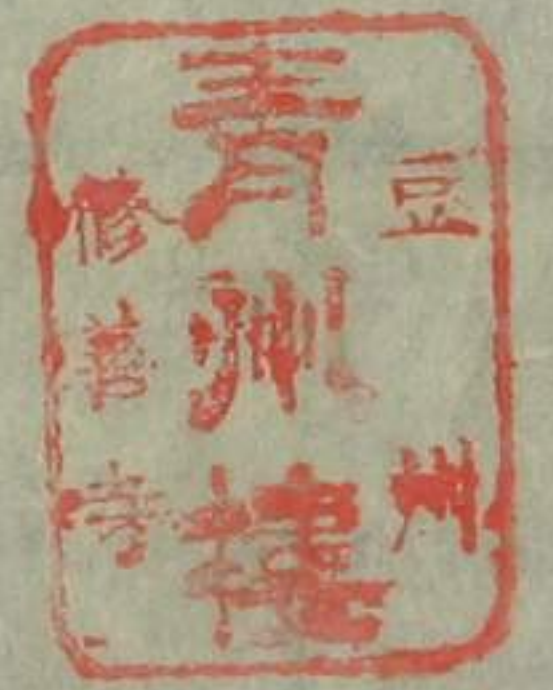 豆州
青州楼
修善寺